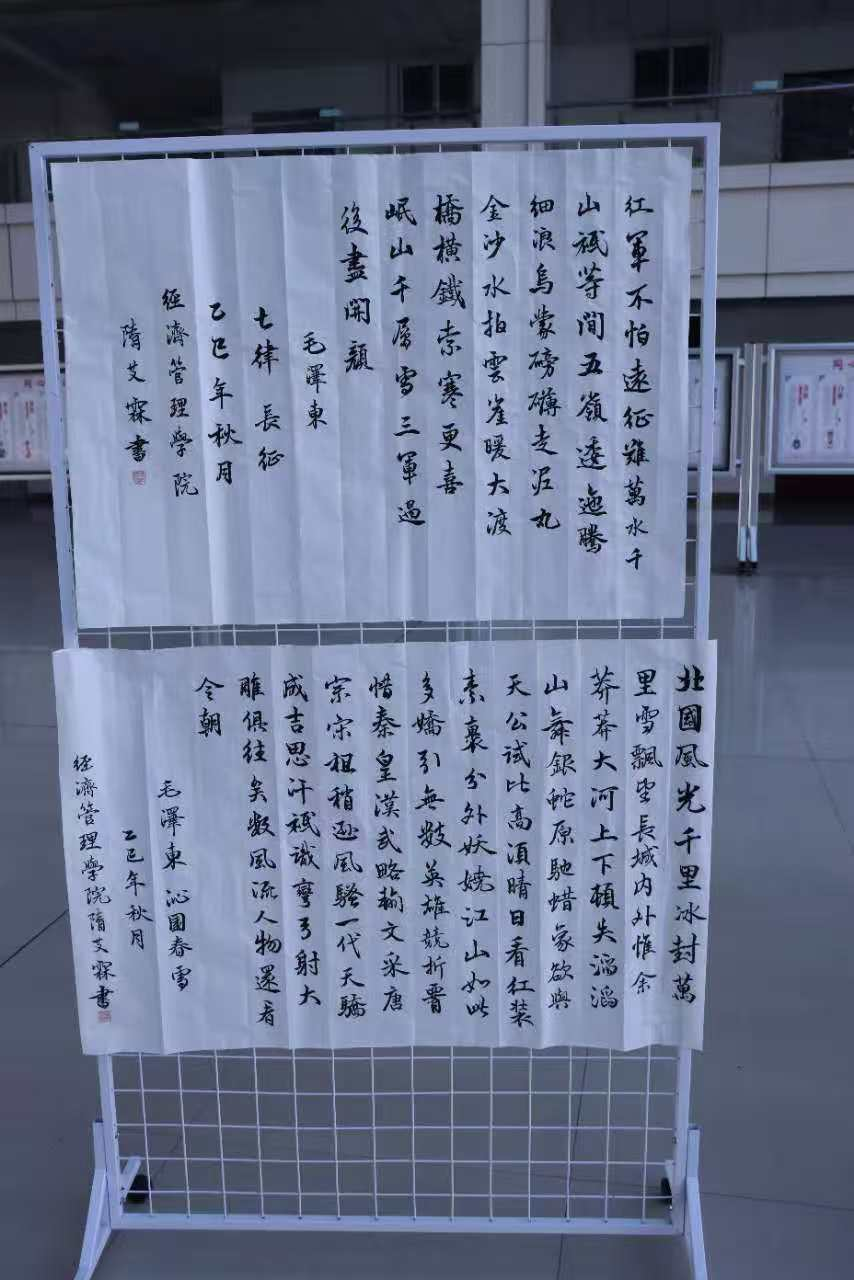 紅軍不怕遠征難萬水千
山祇等閒五嶺逶迤騰
細浪烏蒙磅礴走泥丸
金沙水拍雲崖暖大渡
橋橫鐵索寒更喜
岷山千層雪三軍過
後盡開顏
毛澤東
七律 長征
乙巳年秋月
經濟管理學院
隋艾霖書
北國風光千里冰封萬
里雪飄望長城内外惟余
莽莽大河上下頓失滔滔
山舞銀蛇原馳蜡象欲與
天公試比高須晴日看紅裝
素裹分外妖嬈江山如此
多嬌引無數英雄競折腰
惜秦皇漢武略輸文采唐
宗宋祖稍遜風騷一代天驕
成吉思汗祇識彎弓射大
雕俱往矣數風流人物還看
今朝
毛澤東 沁園春雪
乙巳年秋月
經濟管理學院隋艾霖書